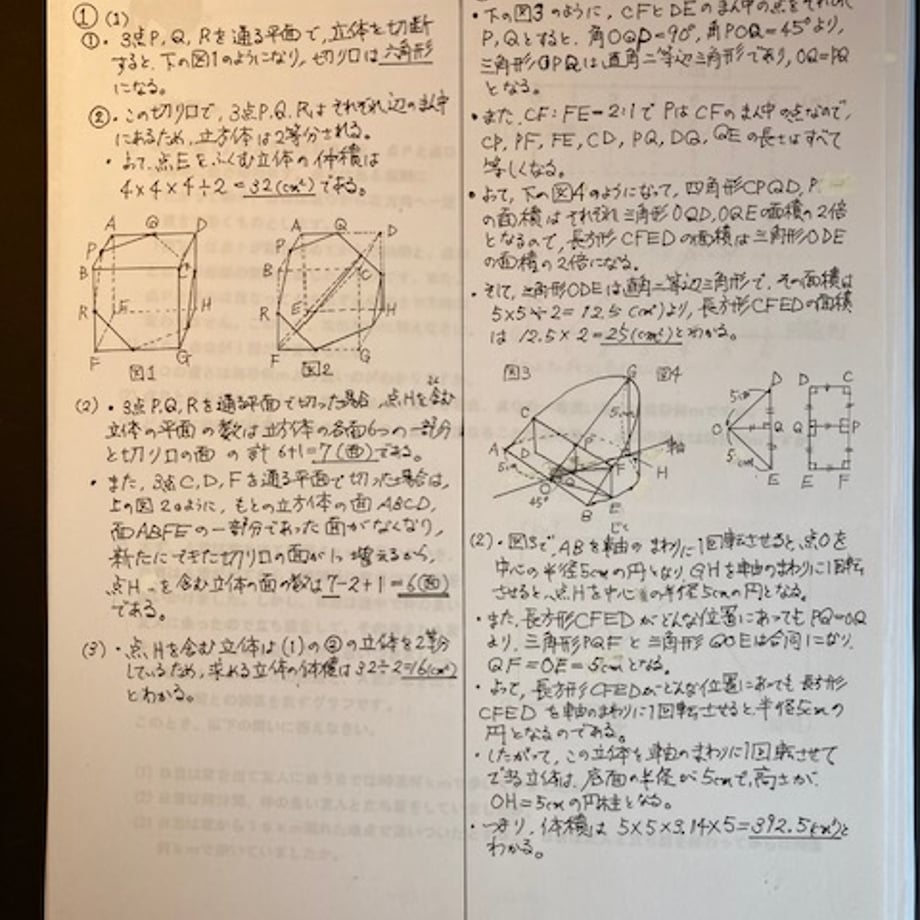 1 (1)
①・3点P, Q, Rを通る平面で, 立体を切断
すると, 下の図1のようになり, 切り口は六角形
になる。
②・この切り口で, 3点P, Q, Rはそれぞれ辺のまん中
にあるため, 立方体は2等分される。
・よって, 点Eをふくむ立体の体積は
4×4×4÷2=32(cm³)である。
A Q D
P
B C
R E H
F G
図1
A Q D
P
B C
R E H
F G
図2
(2)・3点P, Q, Rを通る平面で切った場合, 点Hを含む
立体の平面の数は立方体の各面6つの一部分
と切り口の面の計6+1=7(面)である。
・また, 3点C, D, Fを通る平面で切った場合は,
上の図2のように, もとの立方体の面ABCD,
面ABFEの一部分であった面がなくなり,
新たにできた切り口の面が1つ増えるから,
点Hを含む立体の面の数は7-2+1=6(面)
である。
(3)・点Hを含む立体は(1)の②の立体を2等分
しているため, 求める立体の体積は32÷2=16(cm³)
とわかる。
・下の図3のように, CFとDEのまん中の点をそれぞれ
P, Qとすると, 角OQP=90°, 角POQ=45°より,
三角形OPQは直角二等辺三角形であり, OQ=PQ
となる。
・また, CF:FE=2:1でPはCFのまん中の点なので,
CP, PF, FE, CD, PQ, DQ, QEの長さはすべて
等しくなる。
・よって, 下の図4のようになって, 四角形CPQD, P
の面積はそれぞれ三角形OQD, OQEの面積の2倍
となるので, 長方形CFEDの面積は三角形ODE
の面積の2倍になる。
・そして, 三角形ODEは直角二等辺三角形で, その面積は
5×5÷2=12.5(cm²)より, 長方形CFEDの面積
は12.5×2=25(cm²)とわかる。
図3
G
C 5cm
A D P 軸
5cm F H
O Q
45° B E
図4
D D C
5cm
O Q Q P
5cm
E E F
(2)・図3で, ABを軸のまわりに1回転させると, 点Oを
中心の半径5cmの円となり, GHを軸のまわりに1回転
させると, 点Hを中心の半径5cmの円となる。
・また, 長方形CFEDがどんな位置にあってもPQ=OQ
より, 三角形PQFと三角形QOEは合同になり,
QF=OE=5cmとなる。
・よって, 長方形CFEDがどんな位置にあっても長方形
CFEDを軸のまわりに1回転させると, 半径5cmの
円となるのである。
・したがって, この立体を軸のまわりに1回転させて
できる立体は, 底面の半径が5cmで, 高さが
OH=5cmの円柱となる。
・つまり, 体積は5×5×3.14×5=392.5(cm³)と
わかる。